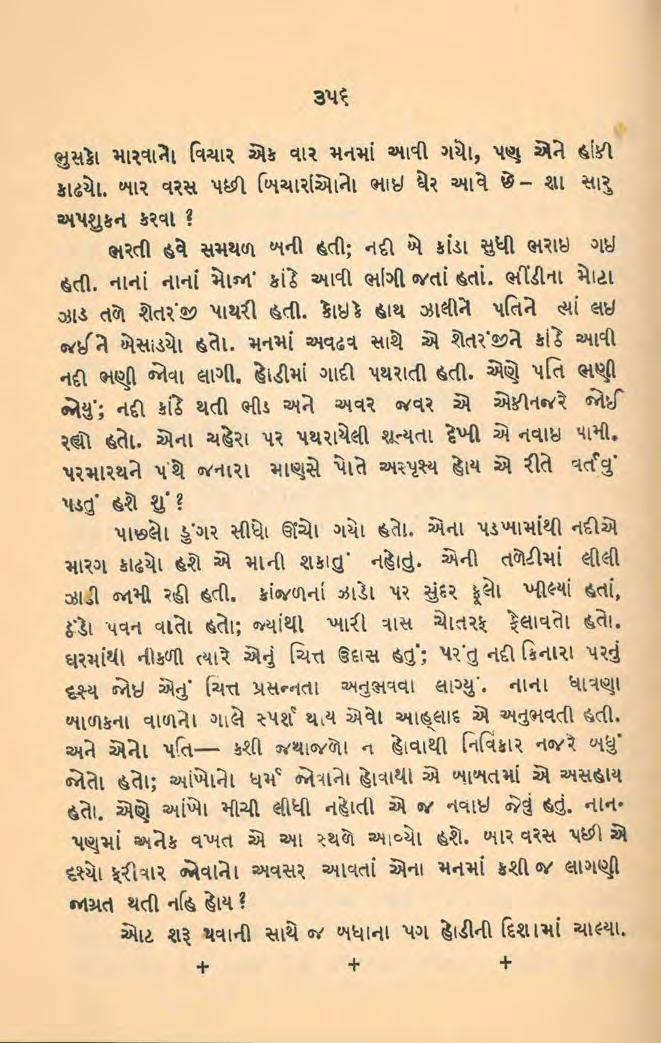 ૩૫૬
ભુસકો મારવાનો વિચાર એક વાર મનમાં આવી ગયો, પણ એને હાંકી
કાઢયો. બાર વરસ પછી બિચારાંઓનો ભાઇ ઘેર આવે છે – શા સારુ
અપશુકન કરવા ?
ભરતી હવે સમથળ બની હતી; નદી બે કાંડા સુધી ભરાઇ ગઇ
હતી. નાનાં નાનાં મોજાં કાંઠે આવી ભાંગી જતાં હતાં. ભીંડીના મોટા
ઝાડ તળે શેતરંજી પાથરી હતી. કોઇકે હાથ ઝાલીને પતિને ત્યાં લઇ
જઈને બેસાડયો હતો. મનમાં અવઢવ સાથે એ શેતરંજીને કાંઠે આવી
નદી ભણી જોવા લાગી. હોડીમાં ગાદી પથરાતી હતી. એણે પતિ ભણી
જોયું; નદી કાંઠે થતી ભીડ અને અવર જવર એ એકીનજરે જોઈ
રહ્યો હતો. એના ચહેરા પર પથરાયેલી શૂન્યતા દેખી એ નવાઇ પામી.
પરમારથને પંથે જનારા માણસે પોતે અસ્પૃશ્ય હોય એ રીતે વર્તવું
પડતું હશે શું ?
પાછલો ડુંગર સીધો ઊંચો ગયો હતો. એના પડખામાંથી નદીએ
મારગ કાઢયો હશે એ માની શકાતું નહોતું. એની તળેટીમાં લીલી
ઝાડી જામી રહી હતી. કાંજળનાં ઝાડો પર સુંદર ફૂલો ખીલ્યાં હતાં,
ઠંડો પવન વાતો હતો; જ્યાંથી ખારી વાસ ચોતરફ ફેલાવતો હતો.
ઘરમાંથી નીકળી ત્યારે એનું ચિત્ત ઉદાસ હતું; પરંતુ નદી કિનારા પરનું
દૃશ્ય જોઇ એનું ચિત્ત પ્રસન્નતા અનુભવવા લાગ્યું. નાના ધાવણા
બાળકના વાળનો ગાલે સ્પર્શ થાય એવો આહ્લાદ એ અનુભવતી હતી.
અને એનો પતિ— કશી જથાજળો ન હોવાથી નિર્વિકાર નજરે બધું
જોતો હતો; આંખોનો ધર્મ જોવાનો હોવાથી એ બાબતમાં એ અસહાય
હતો. એણે આંખો મીચી લીધી નહોતી એ જ નવાઇ જેવું હતું. નાન-
પણમાં અનેક વખત એ આ સ્થળે આવ્યો હશે. બાર વરસ પછી એ
દૃશ્યો ફરીવાર જોવાનો અવસર આવતાં એના મનમાં કશી જ લાગણી
જાગ્રત થતી નહિ હોય ?
ઓટ શરૂ થવાની સાથે જ બધાના પગ હોડીની દિશામાં ચાલ્યા.
+ + +